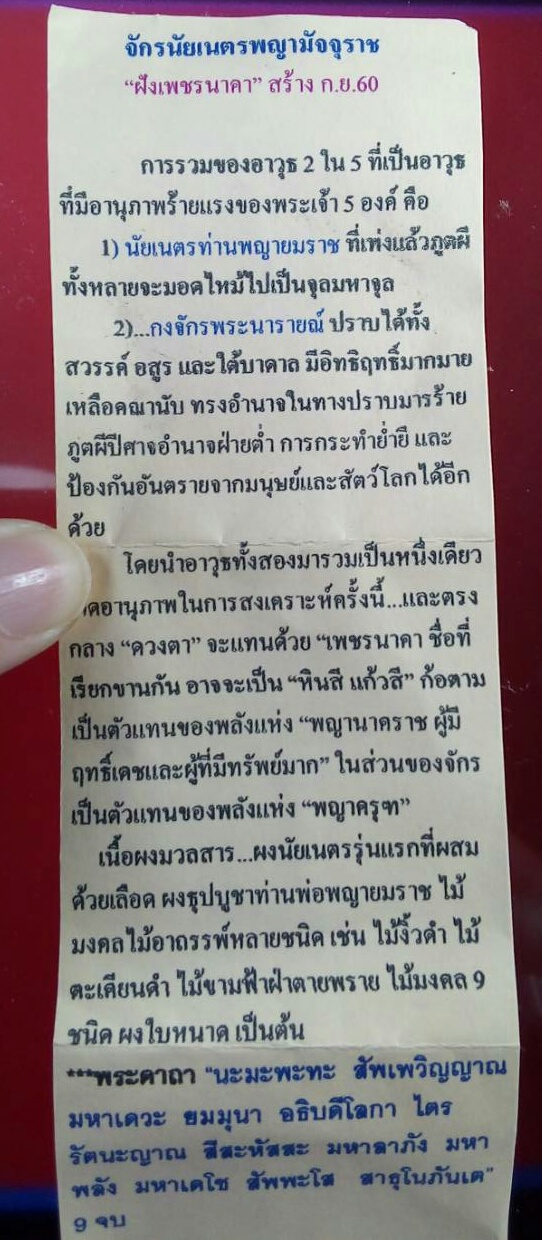 จักรนัยเนตรพญามัจจุราช
“ฝังเพชรนาคา” สร้าง ก.ย.60
การรวมของอาวุธ 2 ใน 5 ที่เป็นอาวุธ
ที่มีอานุภาพร้ายแรงของพระเจ้า 5 องค์ คือ
1) นัยเนตรท่านพญายมราช ที่เพ่งแล้วภูตผี
ทั้งหลายจะมอดไหม้ไปเป็นจุลมหาจุล
2)...กงจักรพระนารายณ์ ปราบได้ทั้ง
สวรรค์ อสูร และใต้บาดาล มีอิทธิฤทธิ์มากมาย
เหลือคณานับ ทรงอำนาจในทางปราบมารร้าย
ภูตผีปีศาจอำนาจฝ่ายต่ำ การกระทำย่ำยี และ
ป้องกันอันตรายจากมนุษย์และสัตว์โลกได้อีก
ด้วย
โดยนำอาวุธทั้งสองมารวมเป็นหนึ่งเดียว
อานุภาพในการสงเคราะห์ครั้งนี้...และตรง
กลาง “ดวงตา” จะแทนด้วย “เพชรนาคา ชื่อที่
เรียกขานกัน อาจจะเป็น “หินสี แก้วสี” ก้อตาม
เป็นตัวแทนของพลังแห่ง “พญานาคราช ผู้มี
ฤทธิ์เดชและผู้ที่มีทรัพย์มาก” ในส่วนของจักร
เป็นตัวแทนของพลังแห่ง “พญาครุฑ”
เนื้อผงมวลสาร...ผงนัยเนตรรุ่นแรกที่ผสม
ด้วยเลือด ผงธุปบูชาท่านพ่อพญายมราช ไม้
มงคลไม้อาถรรพ์หลายชนิด เช่น ไม้งิ้วดำ ไม้
ตะเคียนดำ ไม้ขามฟ้าฝ่าตายพราย ไม้มงคล 9
ชนิด ผงใบหนาด เป็นต้น
***พระคาถา “นะมะพะทะ สัพเพวิญญาณ
มหาเดวะ ยมมุนา อธิบดีโลกา ไตร
รัตนะญาณ สีสะหัสสะ มหาลาภัง มหา
พลัง มหาเดโช สัพพะโส สาธุโนภันเต”
9 จบ